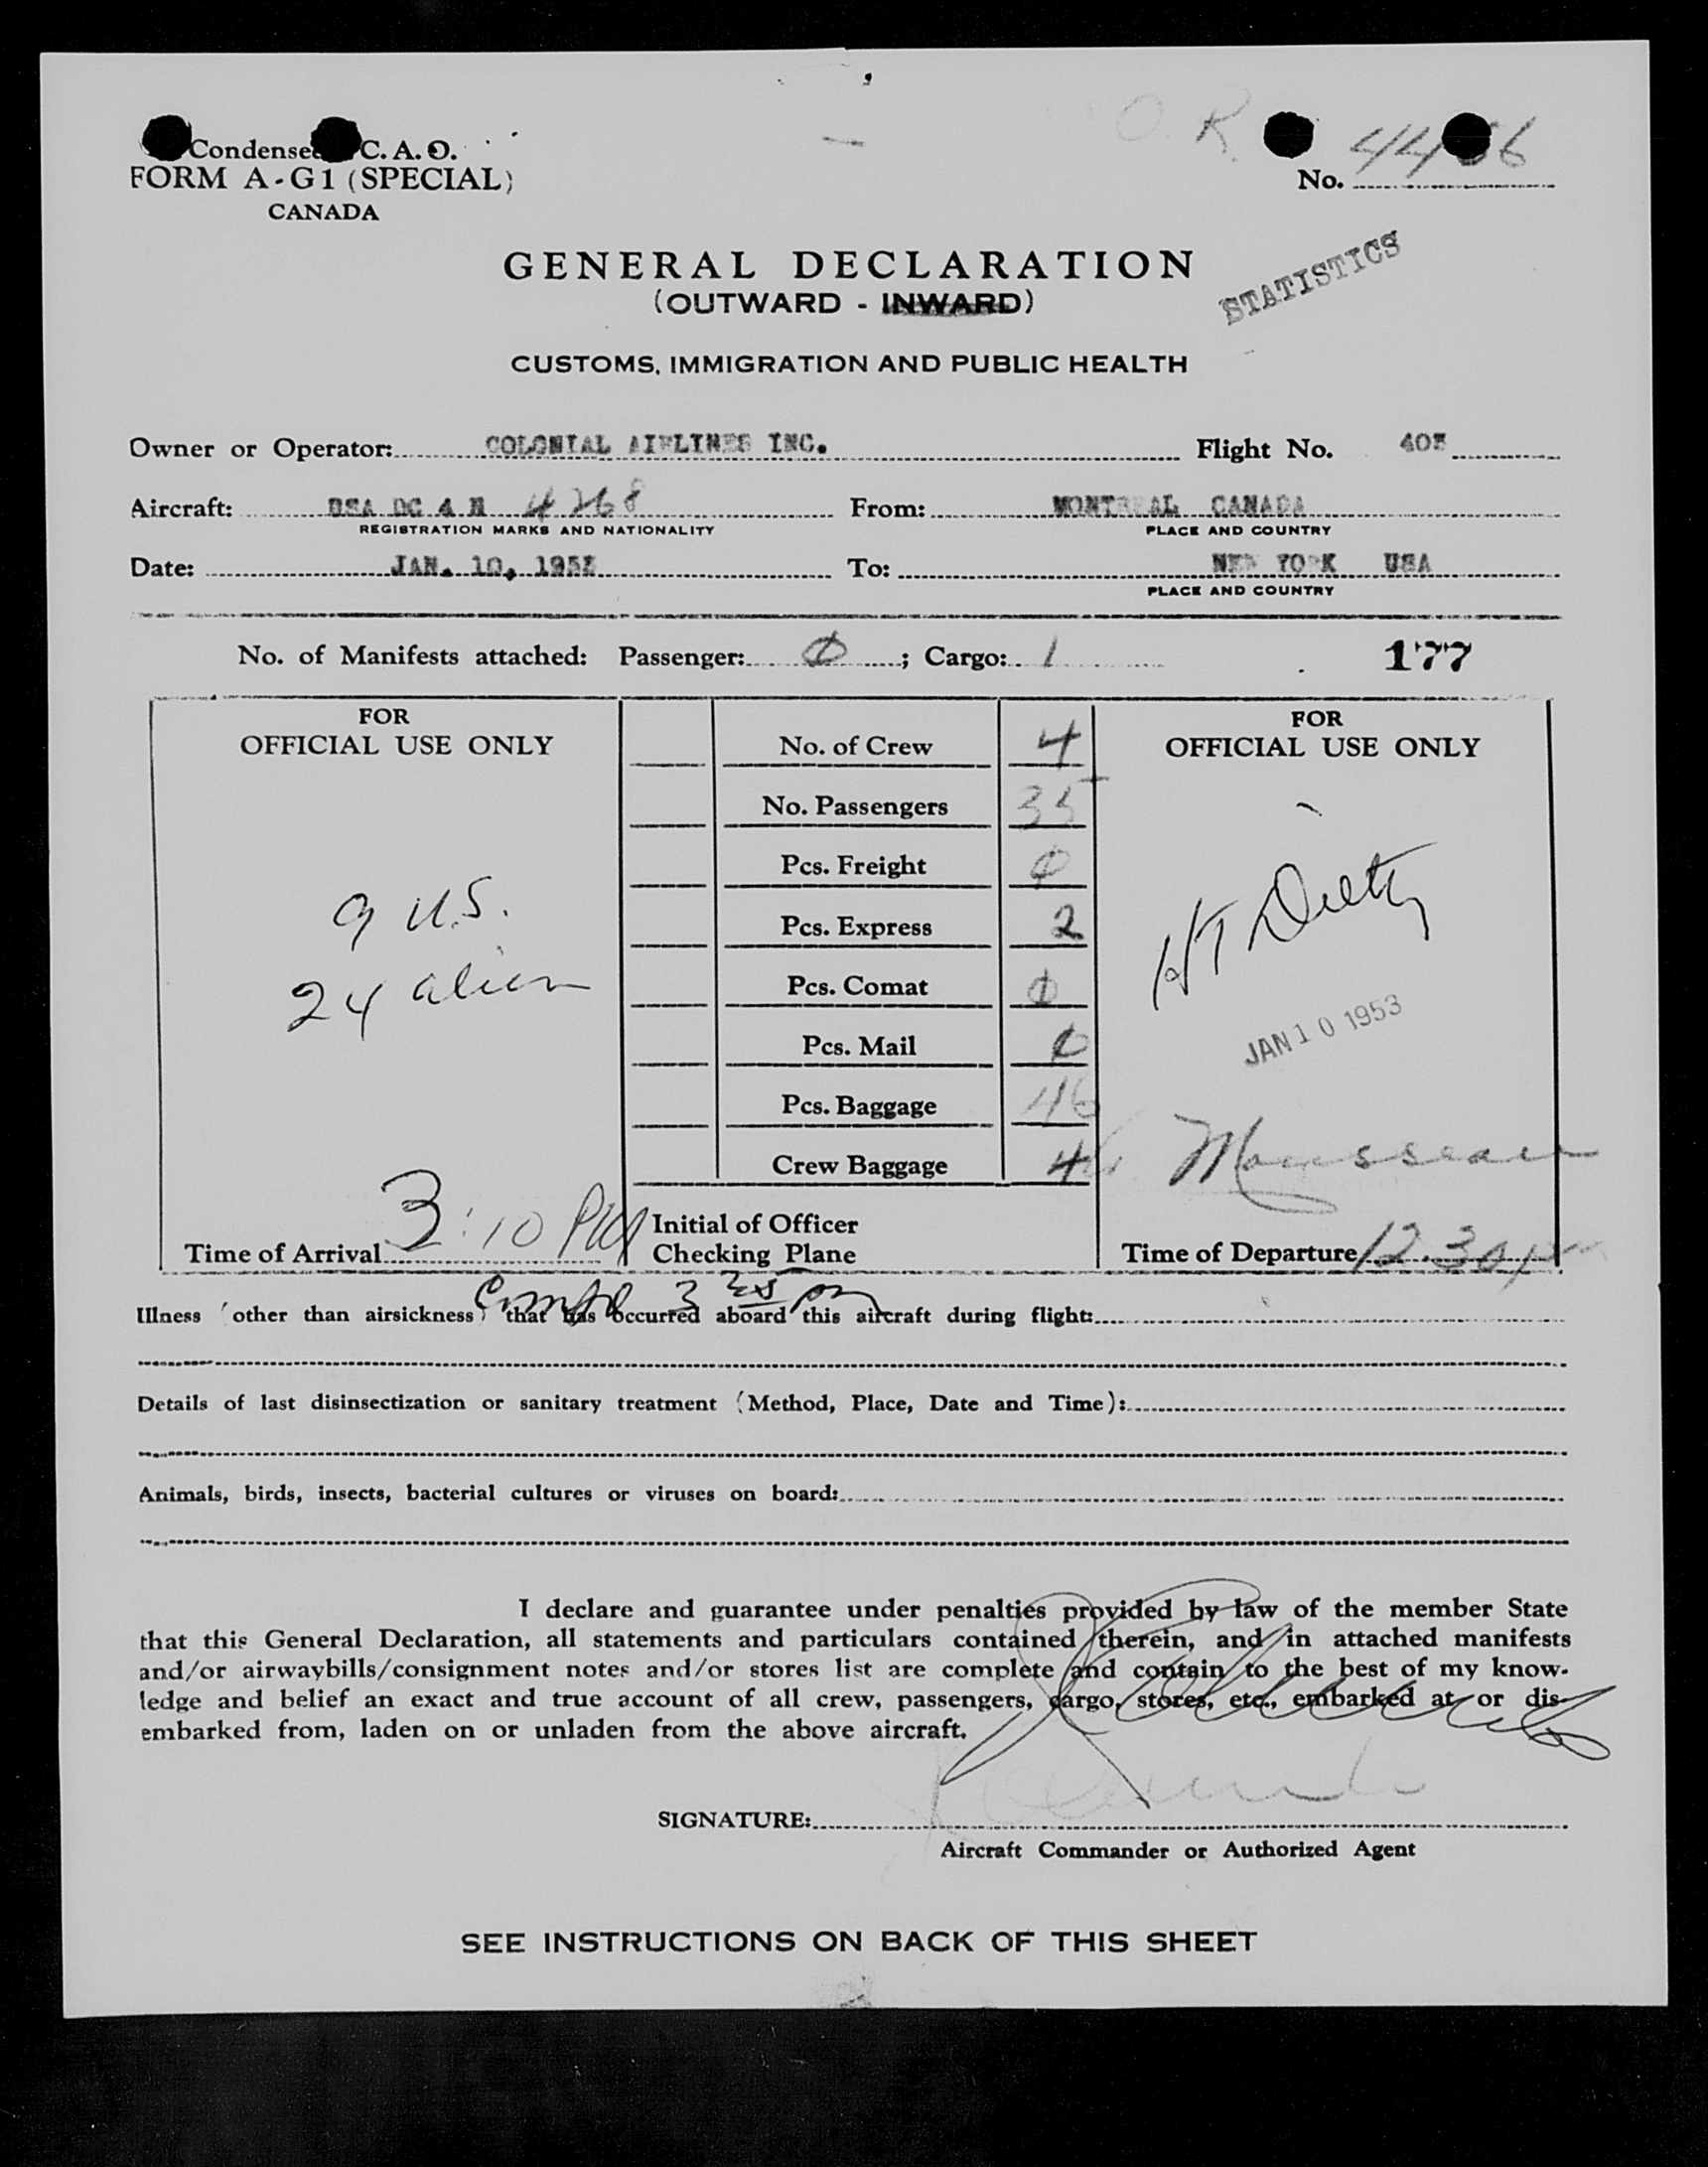 Condensed C. A. O.
FORM A-G1 (SPECIAL)
CANADA
O. R.
No.
GENERAL DECLARATION
(OUTWARD - INWARD)
STATISTICS
CUSTOMS, IMMIGRATION AND PUBLIC HEALTH
Owner or Operator: COLONIAL AIRLINES INC. Flight No.
Aircraft: DC 4 N 4268 From: MONTREAL CANADA
REGISTRATION MARKS AND NATIONALITY PLACE AND COUNTRY
Date: JAN. 10, 1953 To: NEW YORK USA
PLACE AND COUNTRY
No. of Manifests attached: Passenger: 0 ; Cargo: 1 177
FOR
OFFICIAL USE ONLY
9 U.S.
24 alien
Time of Arrival 3:10 PM
No. of Crew 4
No. Passengers 35
Pcs. Freight 0
Pcs. Express 2
Pcs. Comat 0
Pcs. Mail 0
Pcs. Baggage 46
Crew Baggage 4
Initial of Officer
Checking Plane
FOR
OFFICIAL USE ONLY
JAN 10 1953
Mousseau
Time of Departure 12.30
Illness (other than airsickness) that has occurred aboard this aircraft during flight:
Details of last disinsectization or sanitary treatment (Method, Place, Date and Time):
Animals, birds, insects, bacterial cultures or viruses on board:
I declare and guarantee under penalties provided by law of the member State
that this General Declaration, all statements and particulars contained therein, and in attached manifests
and/or airwaybills/consignment notes and/or stores list are complete and contain to the best of my know-
ledge and belief an exact and true account of all crew, passengers, cargo, stores, etc., embarked at or dis-
embarked from, laden on or unladen from the above aircraft.
SIGNATURE:
Aircraft Commander or Authorized Agent
SEE INSTRUCTIONS ON BACK OF THIS SHEET